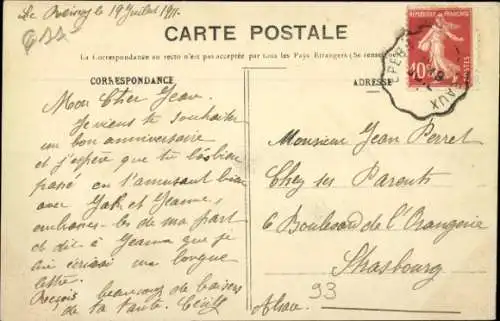 Le Raincy le 19 Juillet 1911.
CARTE POSTALE
La Correspondance au recto n'est pas acceptée par tous les Pays Etrangers (Se rensei
CORRESPONDANCE
Mon Cher Jean.
Je viens te souhaiter
un bon anniversaire
et j'espère que tu l'as bien
passé en t'amusant bien
avec et Jeanne,
embrasse-les de ma part
et dis à Jeanne que je
lui écrirai une longue
lettre.
Reçois beaucoup de baisers
de ta tante Cécile
ADRESSE
Monsieur Jean Perret
Chez ses Parents
6 Boulevard de l'Orangerie
Strasbourg
Alsace.
93
REPUBLIQUE FRANÇAISE
10
POSTES
EPER
EAUX